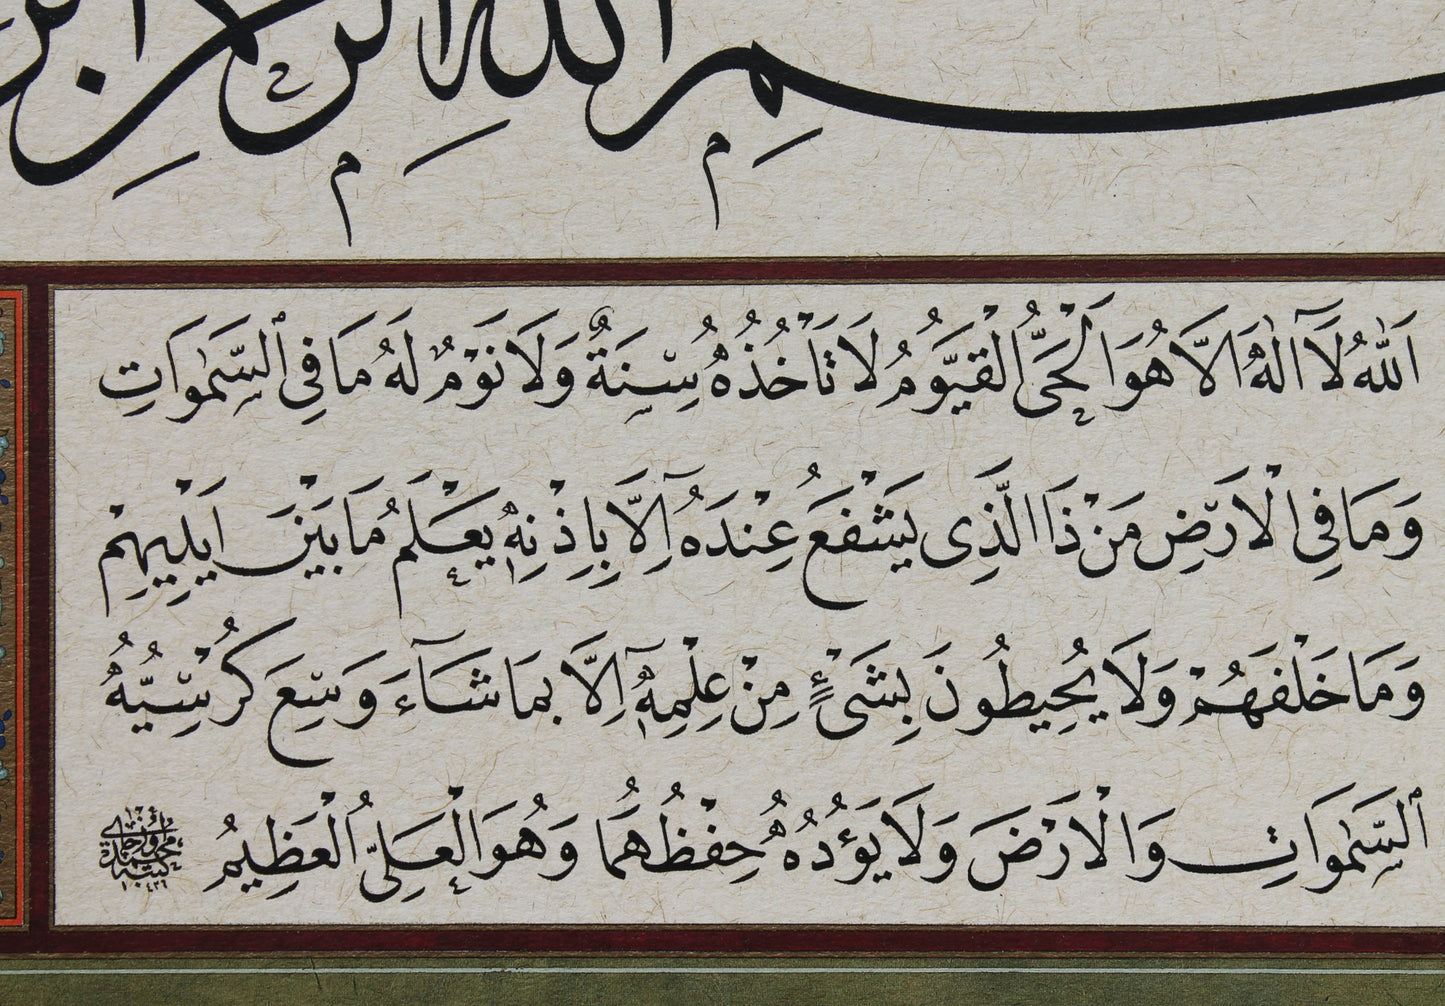 بِسْمِ اللهِ الرَّحْمٰنِ
اَللّٰهُ لَآ اِلٰهَ اِلَّا هُوَ الْحَىُّ الْقَيُّومُ لَا تَاْخُذُهُ سِنَةٌ وَلَا نَوْمٌ لَهُ مَا فِى السَّمٰوَاتِ
وَمَا فِى الْاَرْضِ مَنْ ذَا الَّذِى يَشْفَعُ عِنْدَهُٓ اِلَّا بِاِذْنِهٖ يَعْلَمُ مَا بَيْنَ اَيْدِيهِمْ
وَمَا خَلْفَهُمْ وَلَا يُحِيطُونَ بِشَىْءٍ مِنْ عِلْمِهٖٓ اِلَّا بِمَا شَآءَ وَسِعَ كُرْسِيُّهُ
السَّمٰوَاتِ وَالْاَرْضَ وَلَا يَؤُدُهُ حِفْظُهُمَا وَهُوَ الْعَلِىُّ الْعَظِيمُ